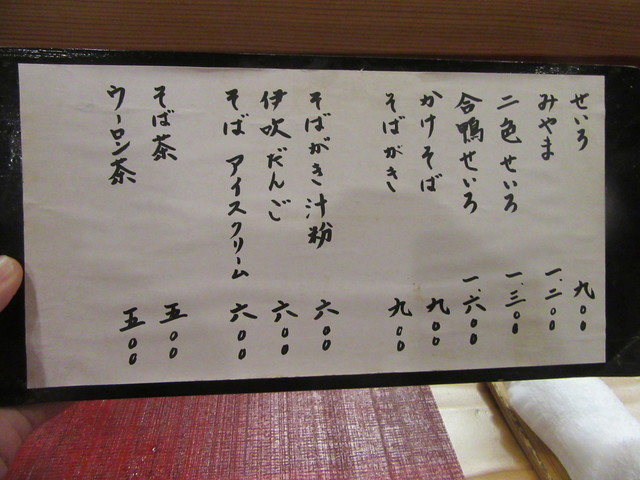 せいろ 九〇〇
みやま 一、二〇〇
二色せいろ 一、三〇〇
合鴨せいろ 一、六〇〇
かけそば 九〇〇
そばがき 九〇〇
そばがき汁粉 六〇〇
伊吹だんご 六〇〇
そば アイスクリーム 六〇〇
そば茶 五〇〇
ウーロン茶 五〇〇